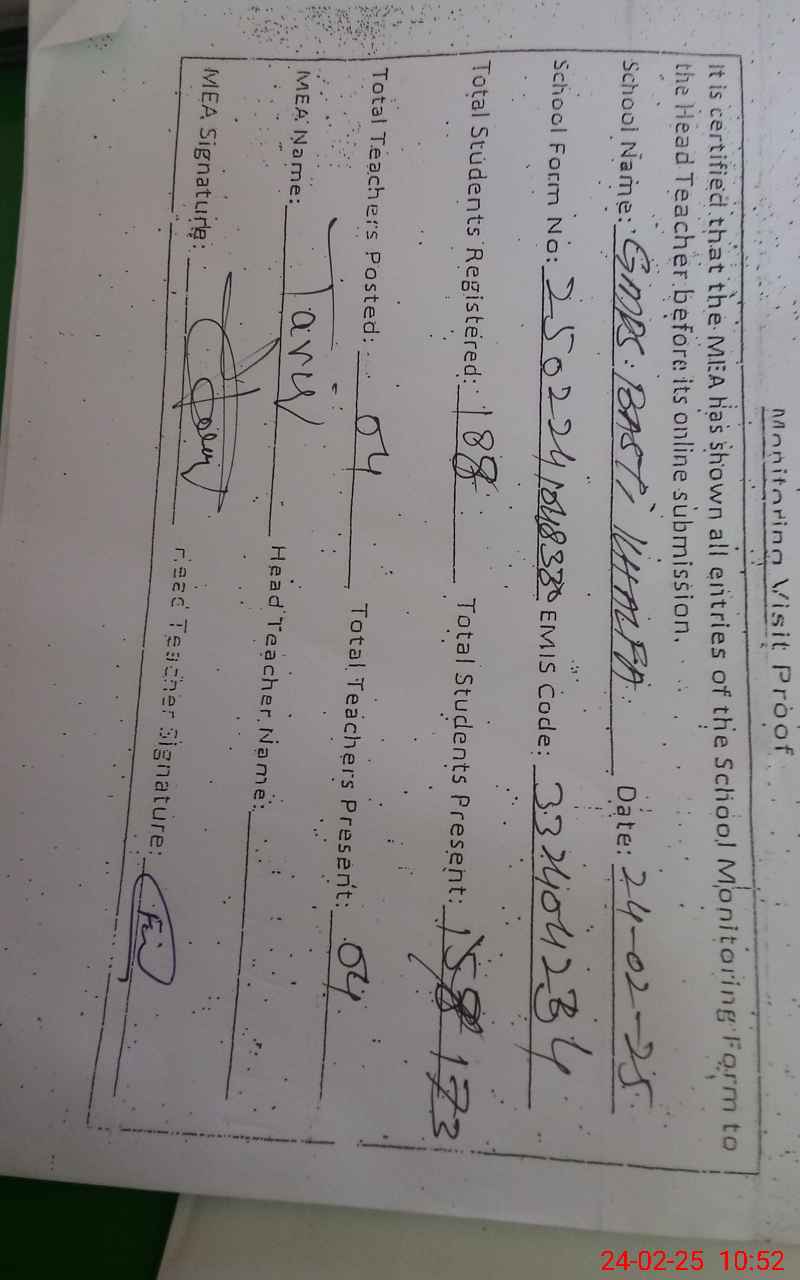 Monitoring Visit Proof
It is certified that the MEA has shown all entries of the School Monitoring Form to
the Head Teacher before its online submission.
School Name: GMPS. BASTI KHALFA Date: 24-02-25
School Form No: EMIS Code: 332404234
Total Students Registered: 188 Total Students Present: 158 173
Total Teachers Posted: 04 Total Teachers Present: 04
MEA Name: Tariq Head Teacher Name:
MEA Signature: Head Teacher Signature:
24-02-25 10:52